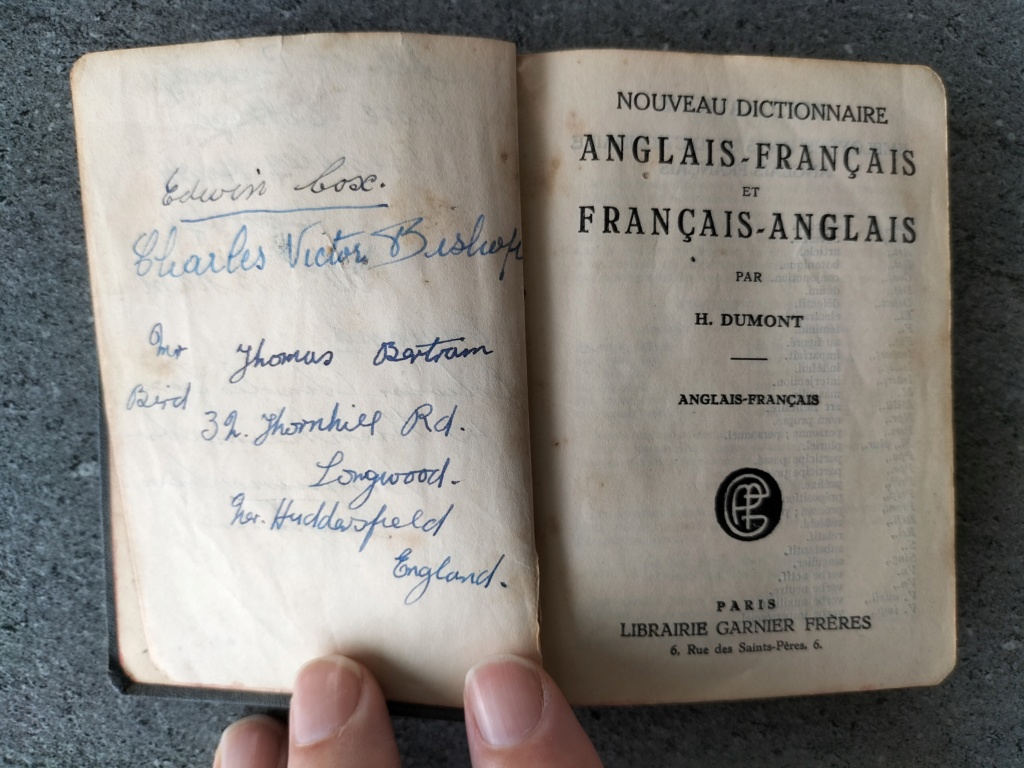 Edwin Cox.
Charles Victor Bishop
Mr Thomas Bertram
Bird
32. Thornhill Rd.
Longwood.
Nr. Huddersfield
England.
NOUVEAU DICTIONNAIRE
ANGLAIS-FRANÇAIS
ET
FRANÇAIS-ANGLAIS
PAR
H. DUMONT
ANGLAIS-FRANÇAIS
PARIS
LIBRAIRIE GARNIER FRÈRES
6, Rue des Saints-Pères, 6.